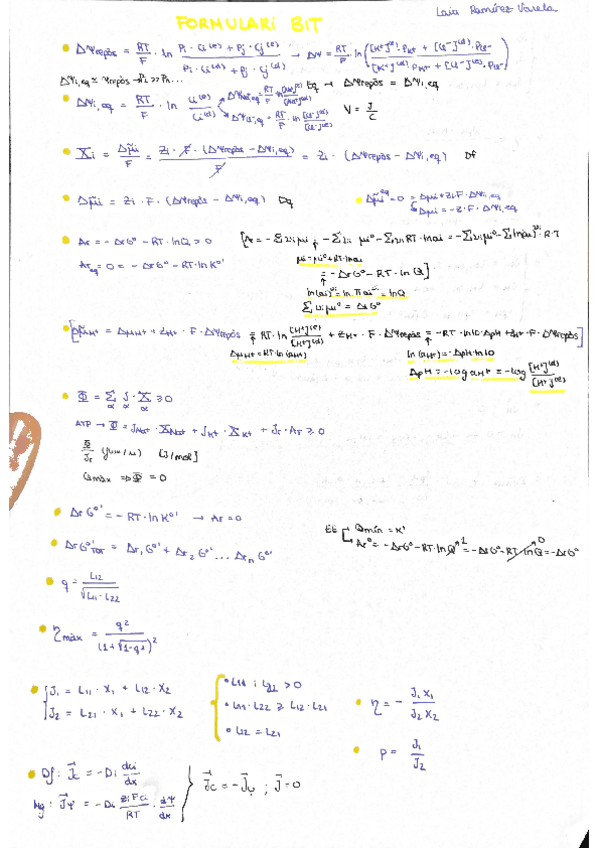 Laia Ramírez Varela
FORMULARI BIT
ΔΨrepòs = RT/F · ln (Pi · Ci(e) + Pj · Cj(i)) / (Pi · Ci(i) + Pj · Cj(e)) → ΔΨ = RT/F · ln ([K+](e) · PK+ + [Cl-](i) · PCl-) / ([K+](i) · PK+ + [Cl-](e) · PCl-)
ΔΨi,eq ≃ Ψrepòs → Pi >> Pn...
ΔΨi,eq = RT/F · ln Ci(e)/Ci(i)
Eq → ΔΨrepòs = ΔΨi,eq
V = J/C
Xi = Δμ̃i/F = Zi · F · (ΔΨrepòs - ΔΨi,eq)/F = Zi · (ΔΨrepòs - ΔΨi,eq) Df
Δμ̃i = Zi · F · (ΔΨrepòs - ΔΨi,eq) Dq
Δμ̃i eq = 0 = Δμi + Zi·F · ΔΨi,eq
Δμi = -Z·F · ΔΨi,eq
Ar = -ΔrG° - RT·lnQ > 0 [Ar = -Σνi μi = -Σνi μi° - Σνi RT·ln ai = -Σνi μi° - Σ ln(ai)^νi · R·T
Areq = 0 = -ΔrG° - RT·lnK°'
μi = μi° + RT·ln ai
= -ΔrG° - RT·lnQ]
ln(ai)^νi = ln Π ai^νi = lnQ
Σ νi μi° = ΔrG°
[Δμ̃H+ = ΔμH+ + ZH+ · F · ΔΨrepòs = RT·ln [H+](e)/[H+](i) + ZH+ · F · ΔΨrepòs = -RT·ln10·ΔpH + ZH+ · F · ΔΨrepòs]
ΔμH+ = RT·ln(aH+)
ln(aH+) = -ΔpH·ln10
ΔpH = -log aH+ = -log [H+](i)/[H+](e)
Φ = Σα jα · Xα ≥ 0
ATP → Φ = JNa+ · XNa+ + JK+ · XK+ + Jr · Ar ≥ 0
Φ/Jr [J/mol]
Qmàx ⇒ Φ = 0
ΔrG°' = -RT·lnK°' → Ar = 0
EE → Qmín = K'
Ar° = -ΔrG° - RT·lnQ 1 = -ΔrG° - RT·lnQ 0 = -ΔrG°
ΔrG°'TOT = Δr1G°' + Δr2G°' ... ΔrnG°'
q = L12/√(L11·L22)
ηmàx = q²/(1+√(1-q²))²
J1 = L11 · X1 + L12 · X2
J2 = L21 · X1 + L22 · X2
L11 ; L22 > 0
L11·L22 ≥ L12·L21
L12 = L21
η = - J1X1/J2X2
P = J1/J2
Df: Jc = -Di dci/dx
Mg: JΨ = -Di ziFci/RT · dΨ/dx
Jc = -JΨ ; J = 0